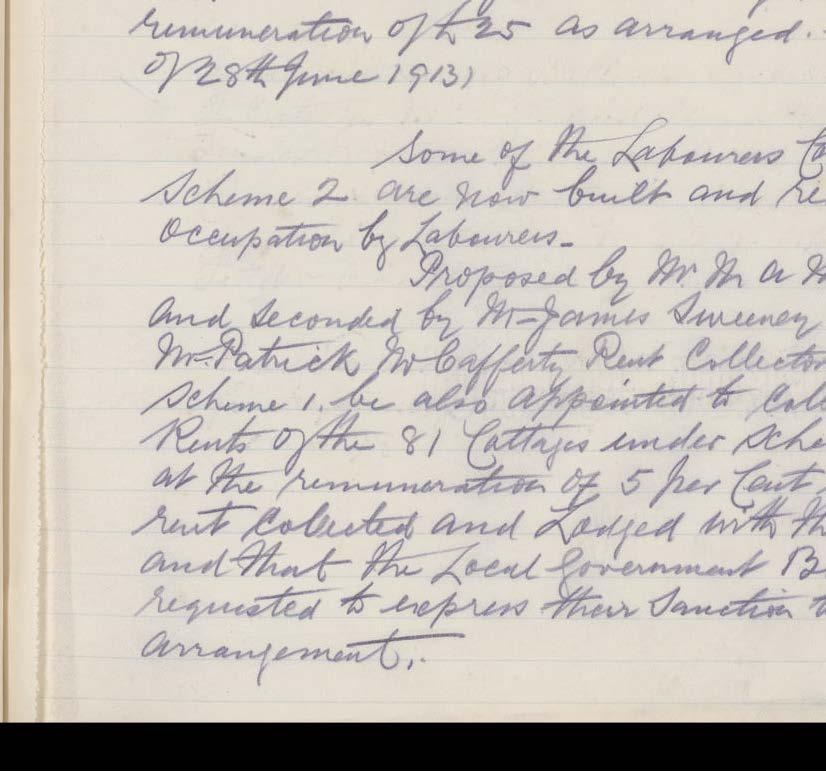 remuneration of £25 as arranged.
of 28th June 1913)
Some of the Labourers
Scheme 2 are now built and re
Occupation by Labourers-
Proposed by Mr. M A
and seconded by Mr James Sweeney
Mr. Patrick McCafferty Rent Collector
Scheme 1. be also appointed to Col
Rents of the 81 Cottages under Sche
at the remuneration of 5 per Cent
rent Collected and Lodged with th
and that the Local Government B
requested to express their Sanction t
arrangement.